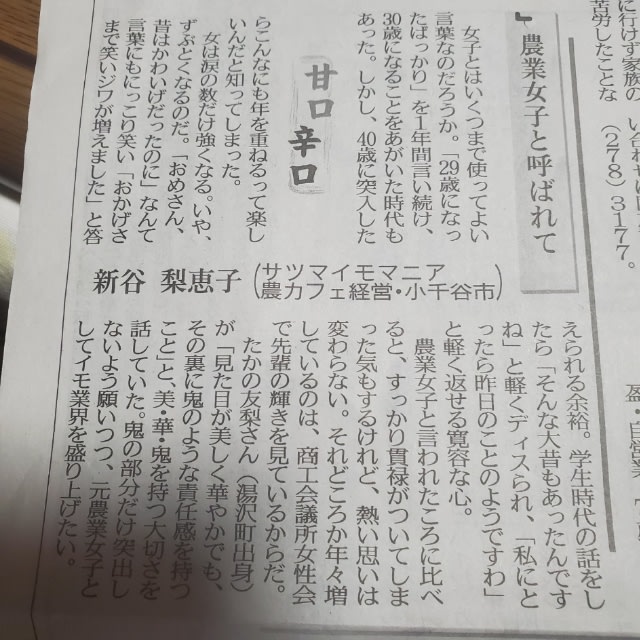 農業女子と呼ばれて
甘口辛口
女子とはいくつまで使ってよい
言葉なのだろうか。「29歳になっ
たばっかり」を1年間言い続け、
30歳になることをあがいた時代も
あった。しかし、40歳に突入した
らこんなにも年を重ねるって楽し
いんだと知ってしまった。
女は涙の数だけ強くなる。いや、
ずぶとくなるのだ。「おめさん、
昔はかわいげだったのに」なんて
言葉にもにっこり笑い「おかげさ
まで笑いジワが増えました」と答
新谷 梨恵子
(サツマイモマニア
農カフェ経営・小千谷市)
えられる余裕。学生時代の話をし
たら「そんな大昔もあったんです
ね」と軽くディスられ、「私にと
ったら昨日のことのようですわ」
と軽く返せる寛容な心。
農業女子と言われたころに比べ
ると、すっかり貫禄がついてしま
った気もするけれど、熱い思いは
変わらない。それどころか年々増
しているのは、商工会議所女性会
で先輩の輝きを見ているからだ。
たかの友梨さん(湯沢町出身)
が「見た目が美しく華やかでも、
その裏に鬼のような責任感を持つ
こと」と、美・華・鬼を持つ大切さを
話していた。鬼の部分だけ突出し
ないよう願いつつ、元農業女子と
してイモ業界を盛り上げたい。
に行けず家族の
苦労したことな
(278)3177。